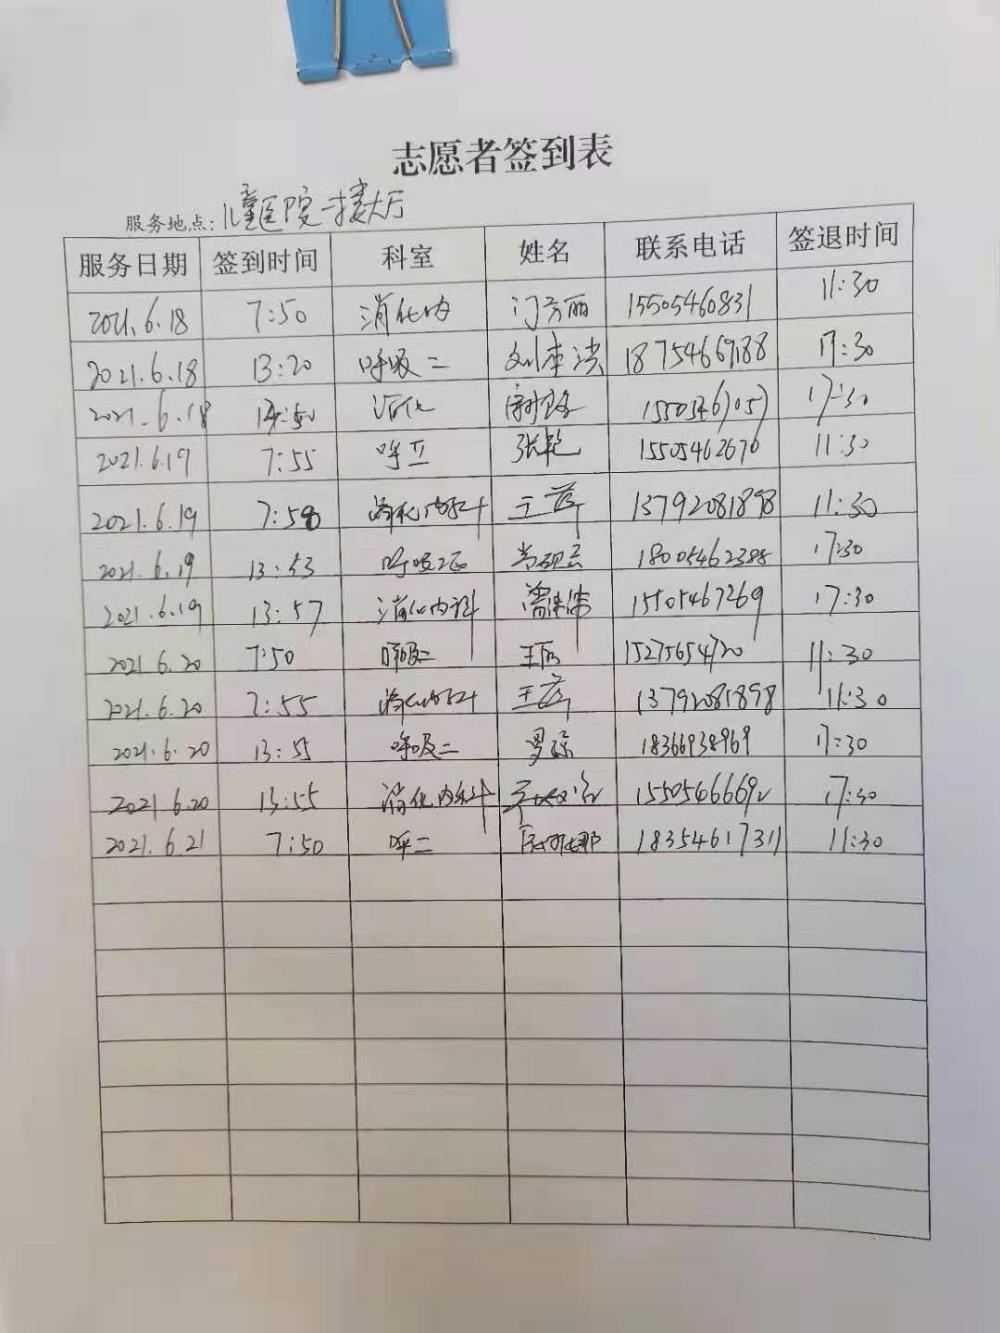 志愿者签到表
服务地点: 儿童医院一楼大厅
服务日期 签到时间 科室 姓名 联系电话 签退时间
2021.6.18 7:50 消化内 门芳丽 15505460831 11:30
2021.6.18 13:20 呼吸二 18754669188 17:30
2021.6.18 消化 17:30
2021.6.19 7:55 呼 张艳 15505462670 11:30
2021.6.19 7:58 消化内科 王 13792081898 11:30
2021.6.19 13:53 呼吸 18005462388 17:30
2021.6.19 13:57 消化内科 15505467269 17:30
2021.6.20 7:50 呼吸二 王丽 15275654720 11:30
2021.6.20 7:55 消化内科 王 13792081898 11:30
2021.6.20 13:55 呼吸二 罗 18366938969 17:30
2021.6.20 13:55 消化内科 17:30
2021.6.21 7:50 呼二 18354617311 11:30